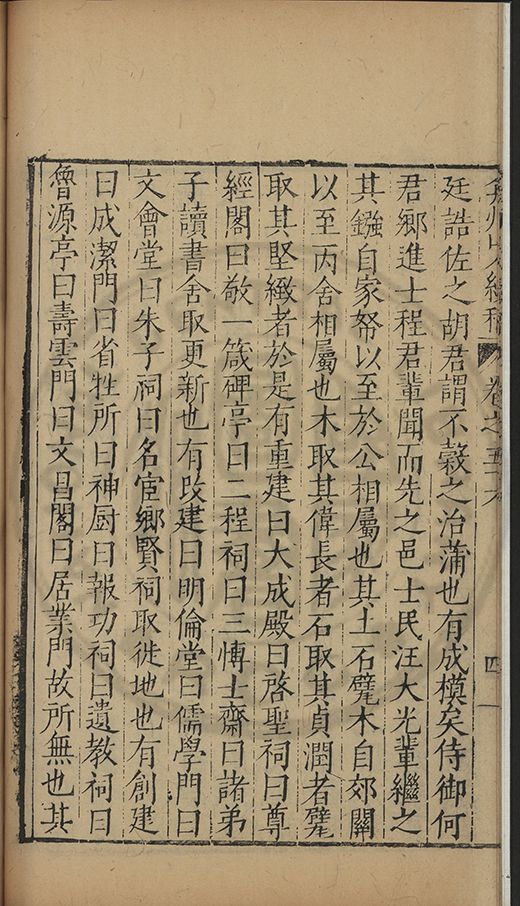 弇州山人續稿 卷之五十六 四
廷誥佐之胡君謂不穀之治蒲也有成模矣侍御何
君鄉進士程君輩聞而先之邑士民汪大光輩繼之
其鏹自家帑以至於公相屬也其土石甓木自郊關
以至丙舍相屬也木取其偉長者石取其貞潤者甓
取其堅緻者於是有重建曰大成殿曰啓聖祠曰尊
經閣曰敬一箴碑亭曰二程祠曰三博士齋曰諸弟
子讀書舍取更新也有改建曰明倫堂曰儒學門曰
文會堂曰朱子祠曰名宦鄉賢祠取徙地也有創建
曰成潔門曰省牲所曰神厨曰報功祠曰遺教祠曰
魯源亭曰壽雲門曰文昌閣曰居業門故所無也其